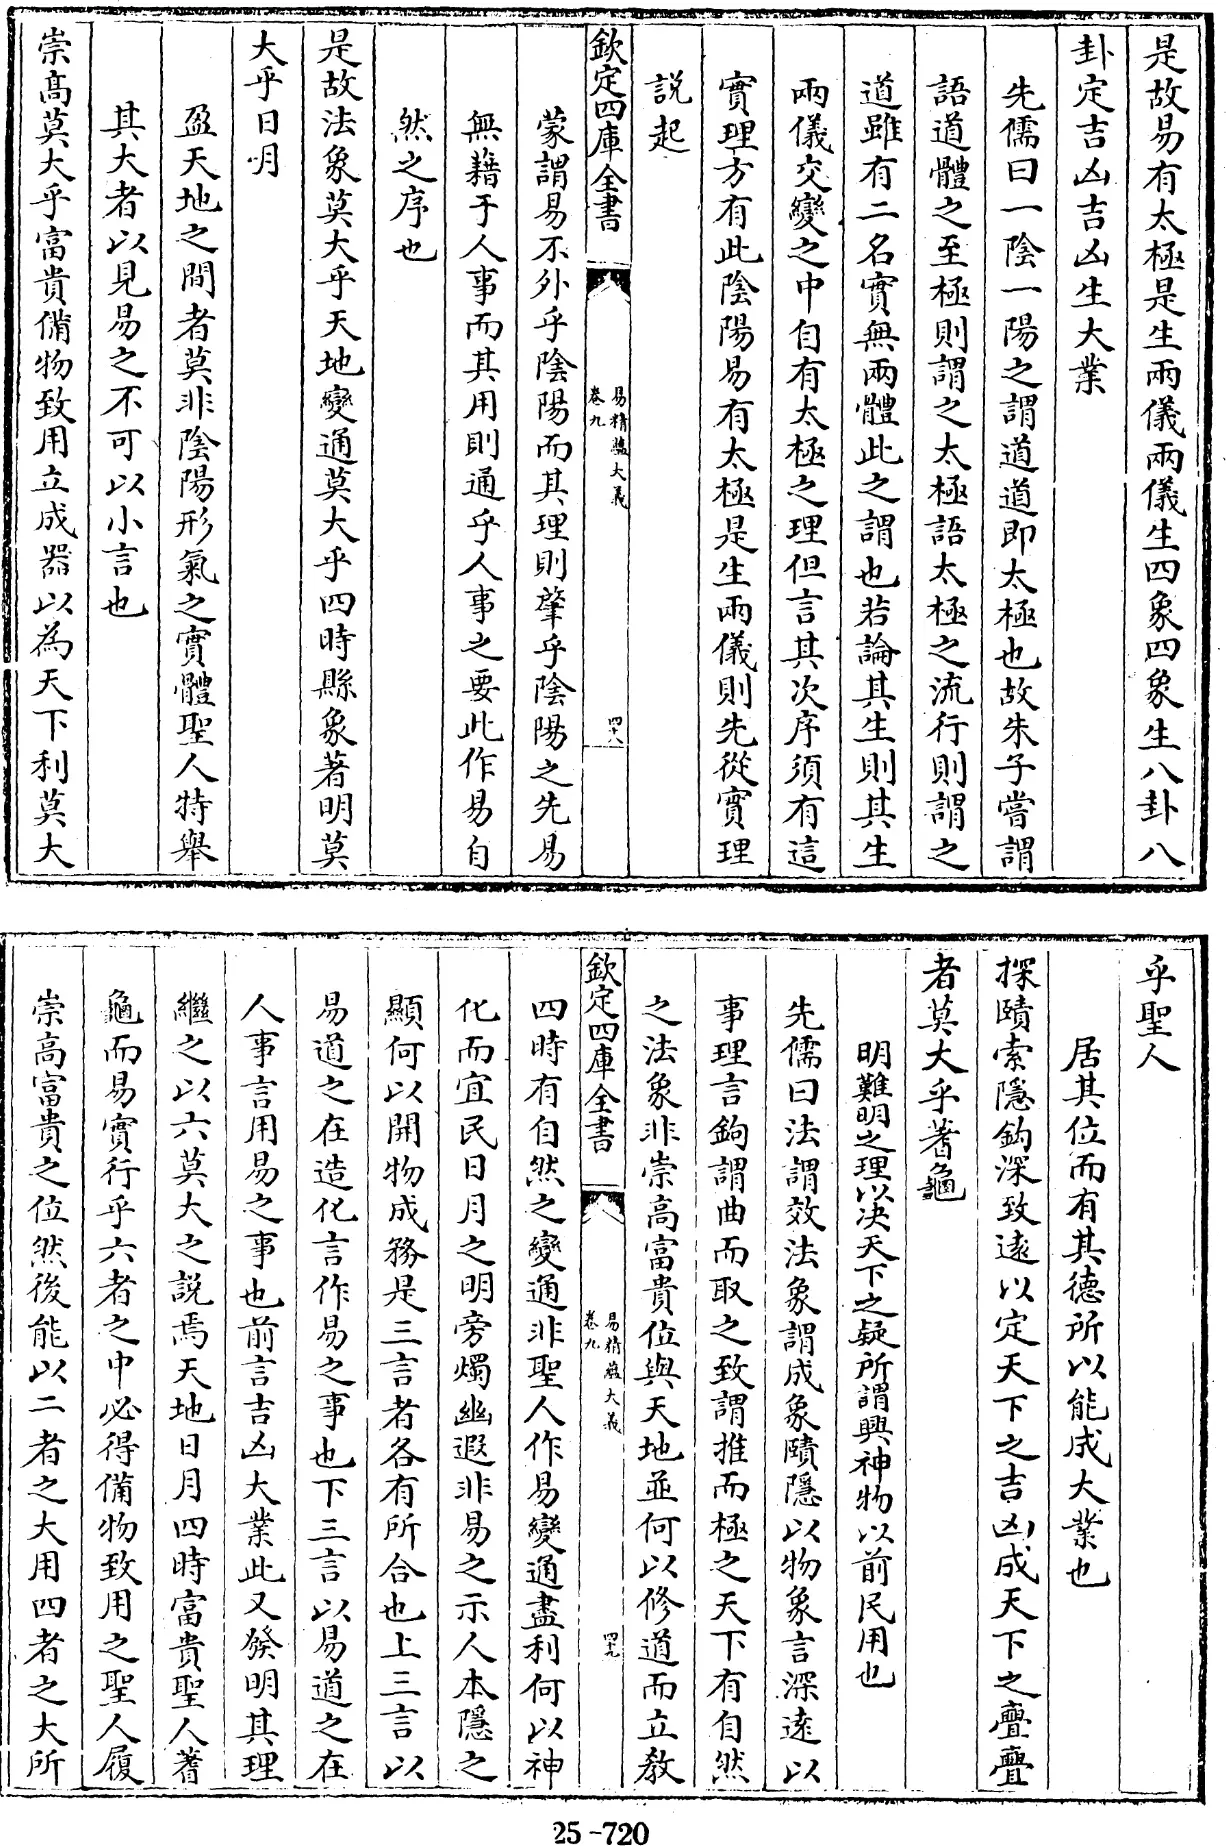 是故易有太極是生兩儀兩儀生四象四象生八卦八
卦定吉凶吉凶生大業
先儒曰一陰一陽之謂道道即太極也故朱子嘗謂
語道體之至極則謂之太極語太極之流行則謂之
道雖有二名實無兩體此之謂也若論其生則其生
兩儀交變之中自有太極之理但言其次序須有這
實理方有此陰陽易有太極是生兩儀則先從實理
説起
欽定四庫全書
易精蘊大義
卷九
四八
蒙謂易不外乎陰陽而其理則肇乎陰陽之先易
無藉于人事而其用則通乎人事之要此作易自
然之序也
是故法象莫大乎天地變通莫大乎四時縣象著明莫
大乎日月
盈天地之間者莫非陰陽形氣之實體聖人特舉
其大者以見易之不可以小言也
崇高莫大乎富貴備物致用立成器以為天下利莫大
乎聖人
居其位而有其徳所以能成大業也
探賾索隱鈎深致逺以定天下之吉凶成天下之亹亹
者莫大乎蓍龜
明難明之理以決天下之疑所謂興神物以前民用也
先儒曰法謂效法象謂成象賾隱以物象言深逺以
事理言鈎謂曲而取之致謂推而極之天下有自然
之法象非崇高富貴位與天地並何以修道而立教
欽定四庫全書
易精蘊大義
卷九
四九
四時有自然之變通非聖人作易變通盡利何以神
化而宜民日月之明旁燭幽遐非易之示人本隱之
顯何以開物成務是三言者各有所合也上三言以
易道之在造化言作易之事也下三言以易道之在
人事言用易之事也前言吉凶大業此又發明其理
繼之以六莫大之説焉天地日月四時富貴聖人蓍
龜而易實行乎六者之中必得備物致用之聖人履
崇高富貴之位然後能以二者之大用四者之大所
25-720